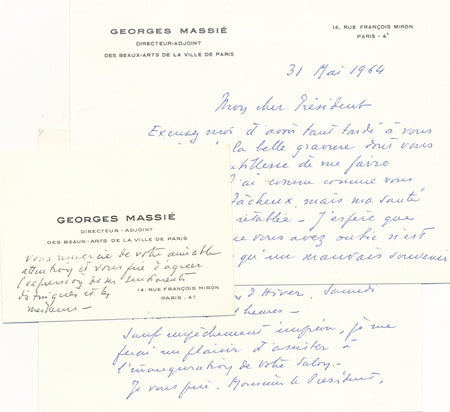 GEORGES MASSIÉ
DIRECTEUR-ADJOINT
DES BEAUX-ARTS DE LA VILLE DE PARIS
14, RUE FRANÇOIS MIRON
PARIS - 4e
31 Mai 1964
Mon cher Président
Excusez moi d'avoir tant tardé à vous
la belle gravure dont vous
de me faire
connu comme vous
fâcheux, mais ma santé
rétablie - J'espère que
vous avez n'est
qu'un mauvais souvenir
GEORGES MASSIÉ
DIRECTEUR-ADJOINT
DES BEAUX-ARTS DE LA VILLE DE PARIS
vous remercie de votre aimable
attention et vous prie d'agréer
l'expression de ses sentiments
distingués et les
meilleurs -
14, RUE FRANÇOIS MIRON
PARIS - 4e
d'Hiver, Samedi
heures -
Sauf empêchement imprévu, je me
ferai un plaisir d'assister à
l'inauguration de votre Salon -
Je vous prie, Monsieur le Président,